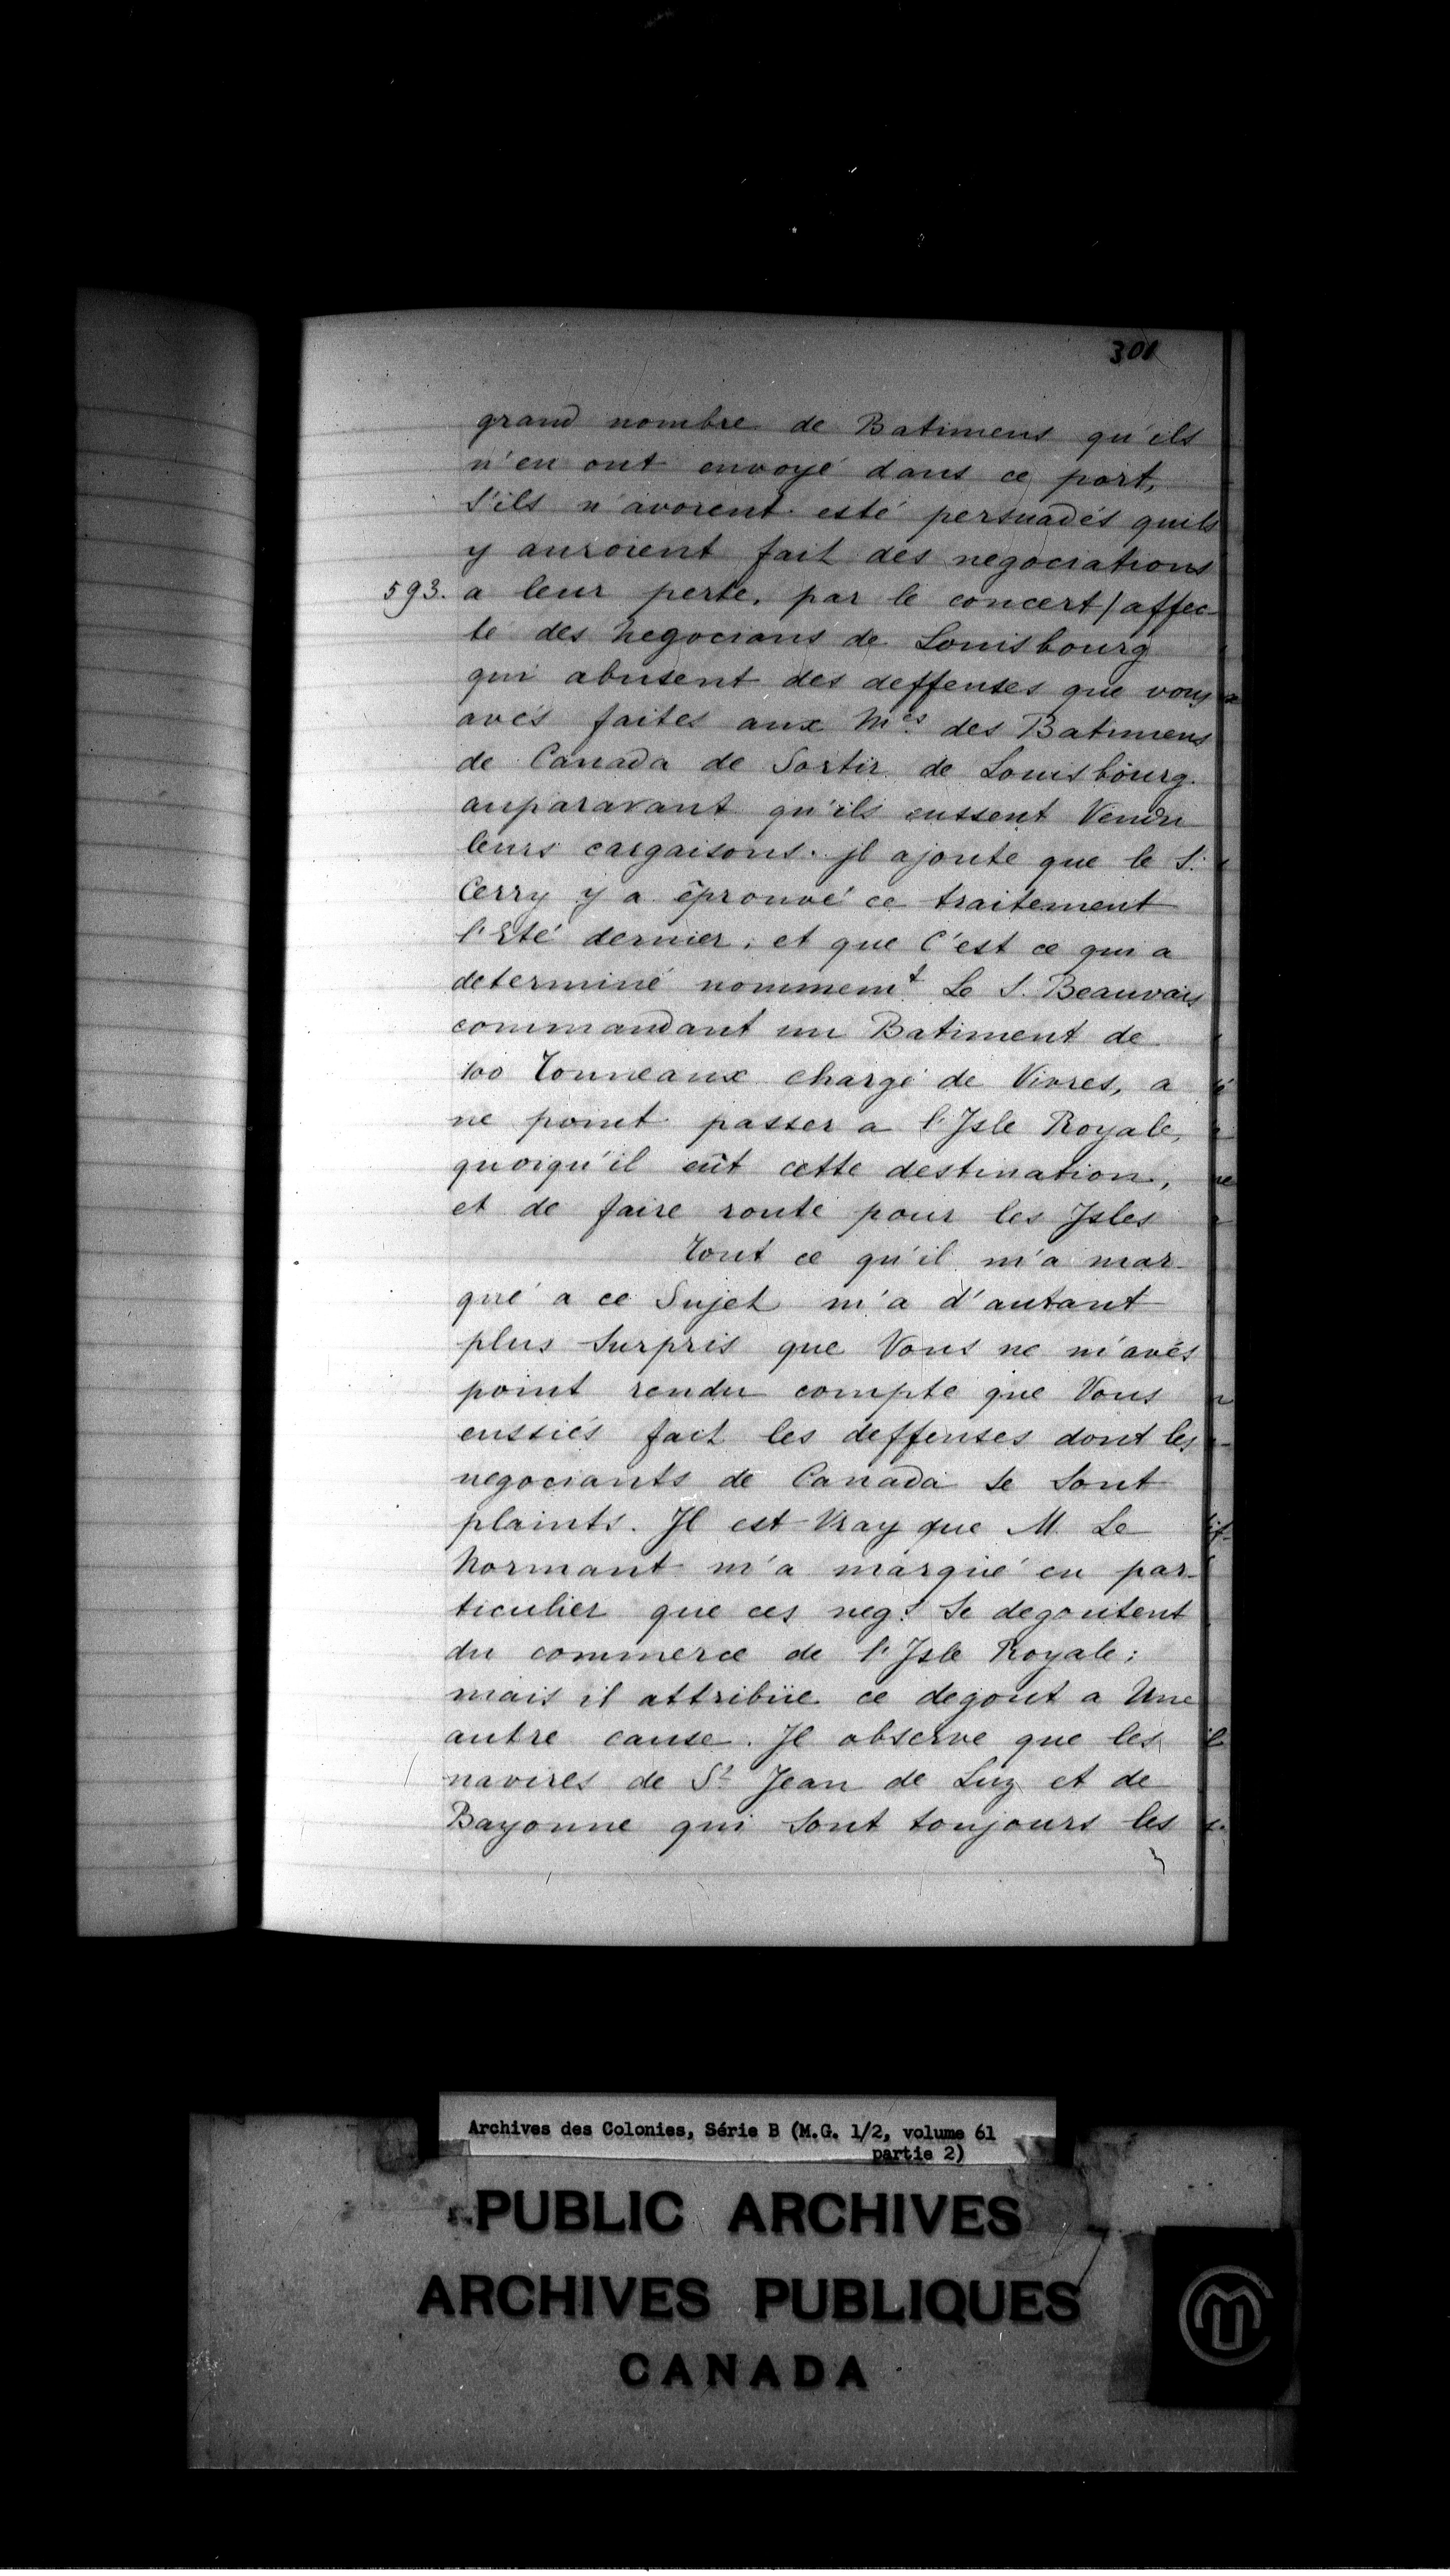 301
grand nombre de Batimens qu'ils
n'en ont envoyé dans ce port,
S'ils n'avoient esté persuadés quils
y auroient fait des negociations
593. a leur perte, par le concert / affec-
te des Negocians de Louisbourg
qui abusent des deffenses que vous
avés faites aux Mes des Batimens
de Canada de Sortir de Louisbourg
auparavant qu'ils eussent Vendu
leurs cargaisons. jl ajoute que le S.
Cerry y a éprouvé ce traitement
l'Eté dernier, et que C'est ce qui a
determiné nommemt Le S. Beauvais
commandant un Batiment de
100 Tonneaux chargé de Vivres, a
ne point passer a l'Jsle Royale,
quoiqu'il eût cette destination,
et de faire route pour les Jsles
Tout ce qu'il m'a mar-
qué a ce Sujet m'a d'autant
plus Surpris que Vous ne m'avés
point rendu compte que Vous
eussiés fait les deffenses dont les
negociants de Canada Se Sont
plaints. Jl est Vray que M. Le
Normant m'a marqué en par-
ticulier que ces negs Se degoutent
du commerce de l'Jsle Royale;
mais il attribüe ce degout a Une
autre cause. Jl observe que les
navires de St Jean de Luz et de
Bayonne qui Sont toujours les
Archives des Colonies, Série B (M.G. 1/2, volume 61
partie 2)
PUBLIC ARCHIVES
ARCHIVES PUBLIQUES
CANADA